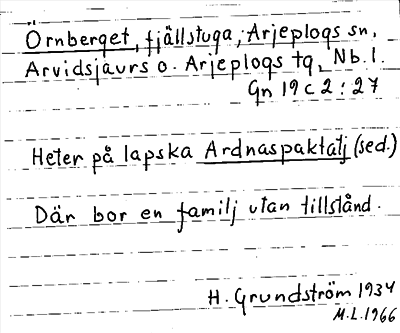 Örnberget, fjällstuga, Arjeplogs sn,
Arvidsjaurs o. Arjeplogs tg, Nb. l.
Gn 19 c 2 : 27
Heter på lapska Ardnaspaktatj (sed.)
Där bor en familj utan tillstånd.
H. Grundström 1934
M.L. 1966